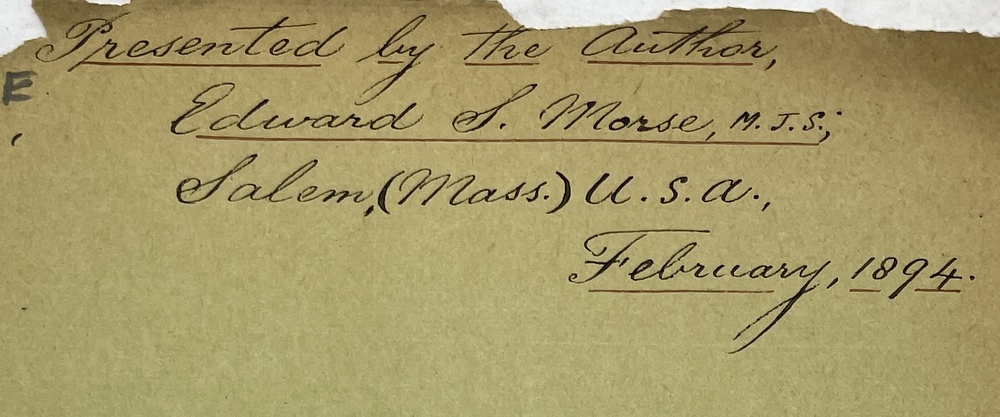 Presented by the Author,
E
Edward S. Morse, M.J.S.;
,
Salem, (Mass.) U.S.A.,
February, 1894.